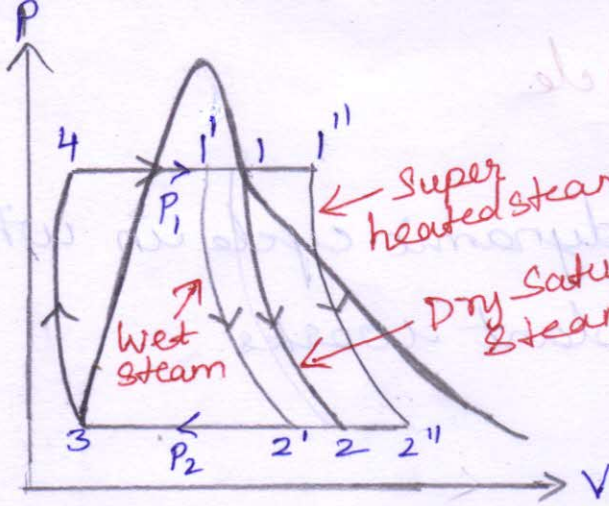 P
4
1'
1
1"
P1
Super
heated stea
Dry Satu
stea
Wet
steam
3
P2
2'
2
2"
V